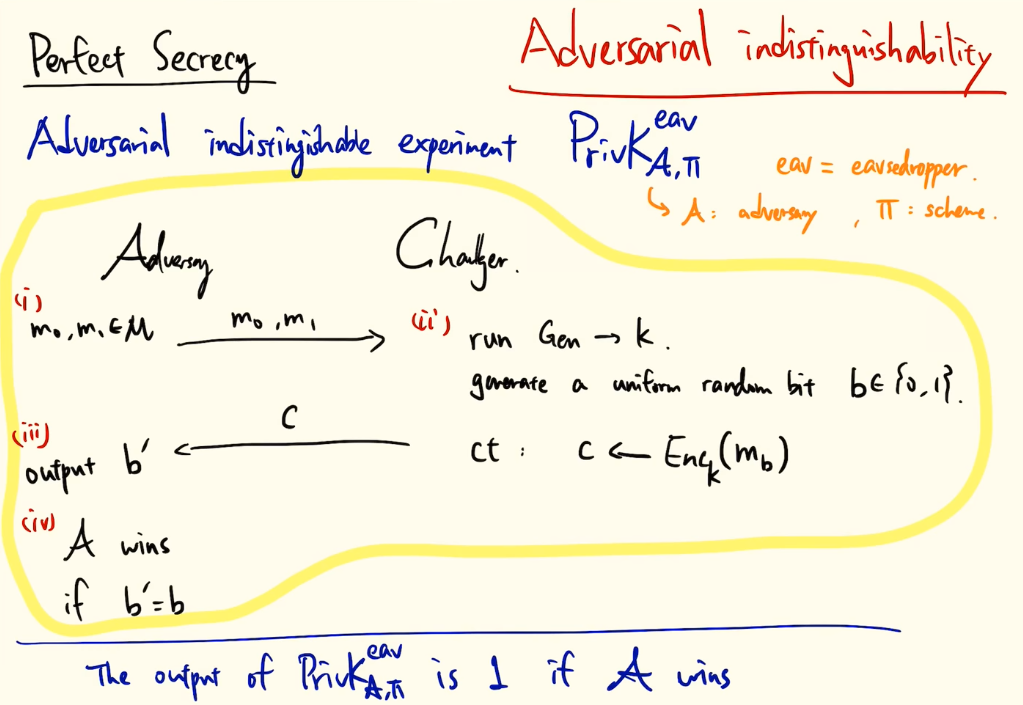 Perfect Secrecy
Adversarial indistinguishability
Adversarial indistingishable experiment PrivK^{eav}_{A,Π}
eav = eavsedropper.
↳ A : adversary , Π : scheme.
Adversary
Challger.
(i)
m₀, m₁ ∈ M
m₀, m₁
(ii)
run Gen → k.
generate a uniform random bit b ∈ {0,1}.
C
ct : c ← Enc_k(m_b)
(iii)
output b'
(iv)
A wins
if b' = b
The output of PrivK^{eav}_{A,Π} is 1 if A wins